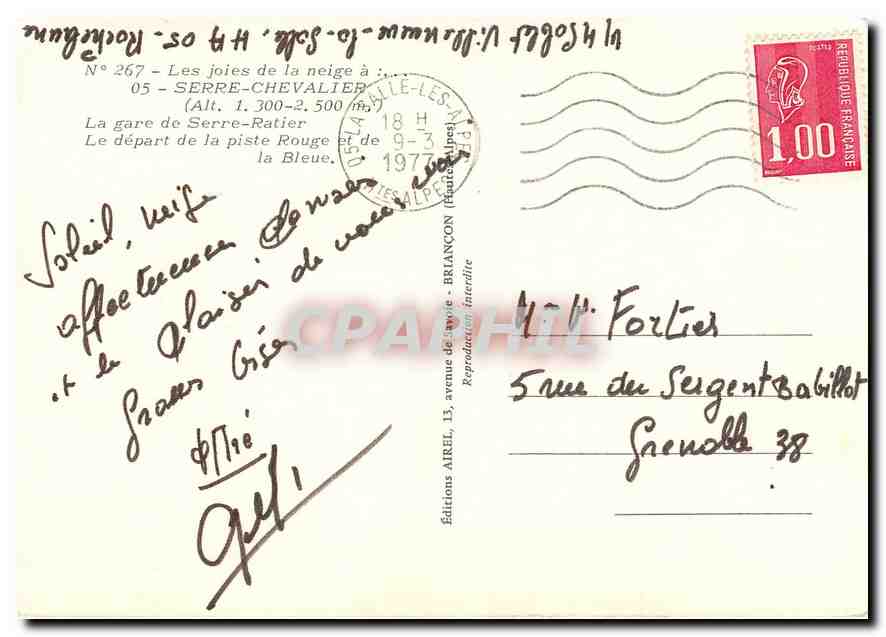 Villeneuve-la-Salle, H A 05-
N° 267 - Les joies de la neige à :...
05 - SERRE-CHEVALIER
(Alt. 1.300-2.500 m.)
La gare de Serre-Ratier
Le départ de la piste Rouge et de
la Bleue.
05-LA SALLE-LES-ALPES
18 H
9-3
1977
HTES ALPES
POSTES
RÉPUBLIQUE FRANÇAISE
1,00
Soleil, neige
affectueuses pensées
et le plaisir de vous voir
Gros bisés
CPAPHIL
Éditions AIREL, 13, avenue de Savoie - BRIANÇON (Hautes-Alpes)
Reproduction interdite
Fortier
5 rue du Sergent Bobillot
Grenoble 38